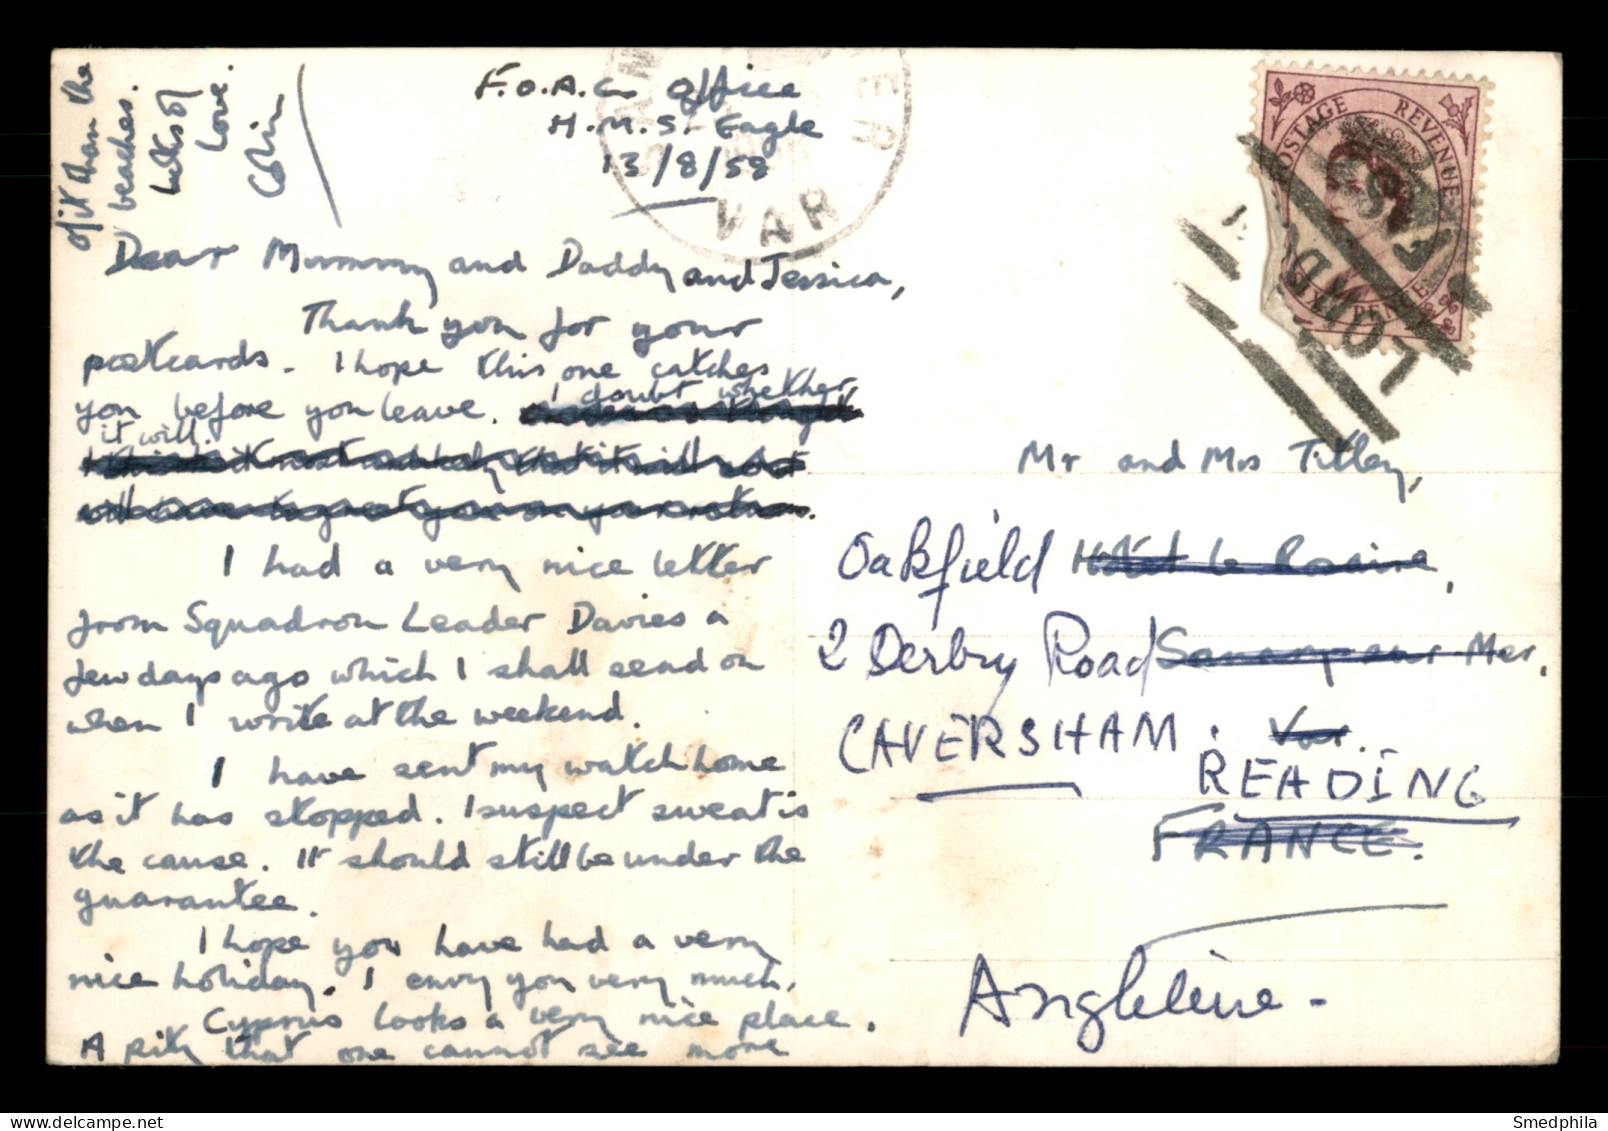 F.O.A.C's Office
H.M.S. Eagle
13/8/58
Dear Mummy and Daddy and Jessica,
Thank you for your
postcards. I hope this one catches
you before you leave. I doubt whether
it will.
I had a very nice letter
from Squadron Leader Davies a
few days ago which I shall send on
when I write at the weekend.
I have sent my watch home
as it has stopped. I suspect sweat is
the cause. It should still be under the
guarantee.
I hope you have had a very
nice holiday. I envy you very much.
Cyprus looks a very nice place.
A pity that one cannot see more
of it than the
beaches.
Lots of
Love.
Colin
VAR
POSTAGE REVENUE
Mr and Mrs Tilley,
Oakfield Hotel Le Rosaire,
2 Derby Road Mer.
CAVERSHAM. Var.
READING
FRANCE.
Angleterre -
Smedphila